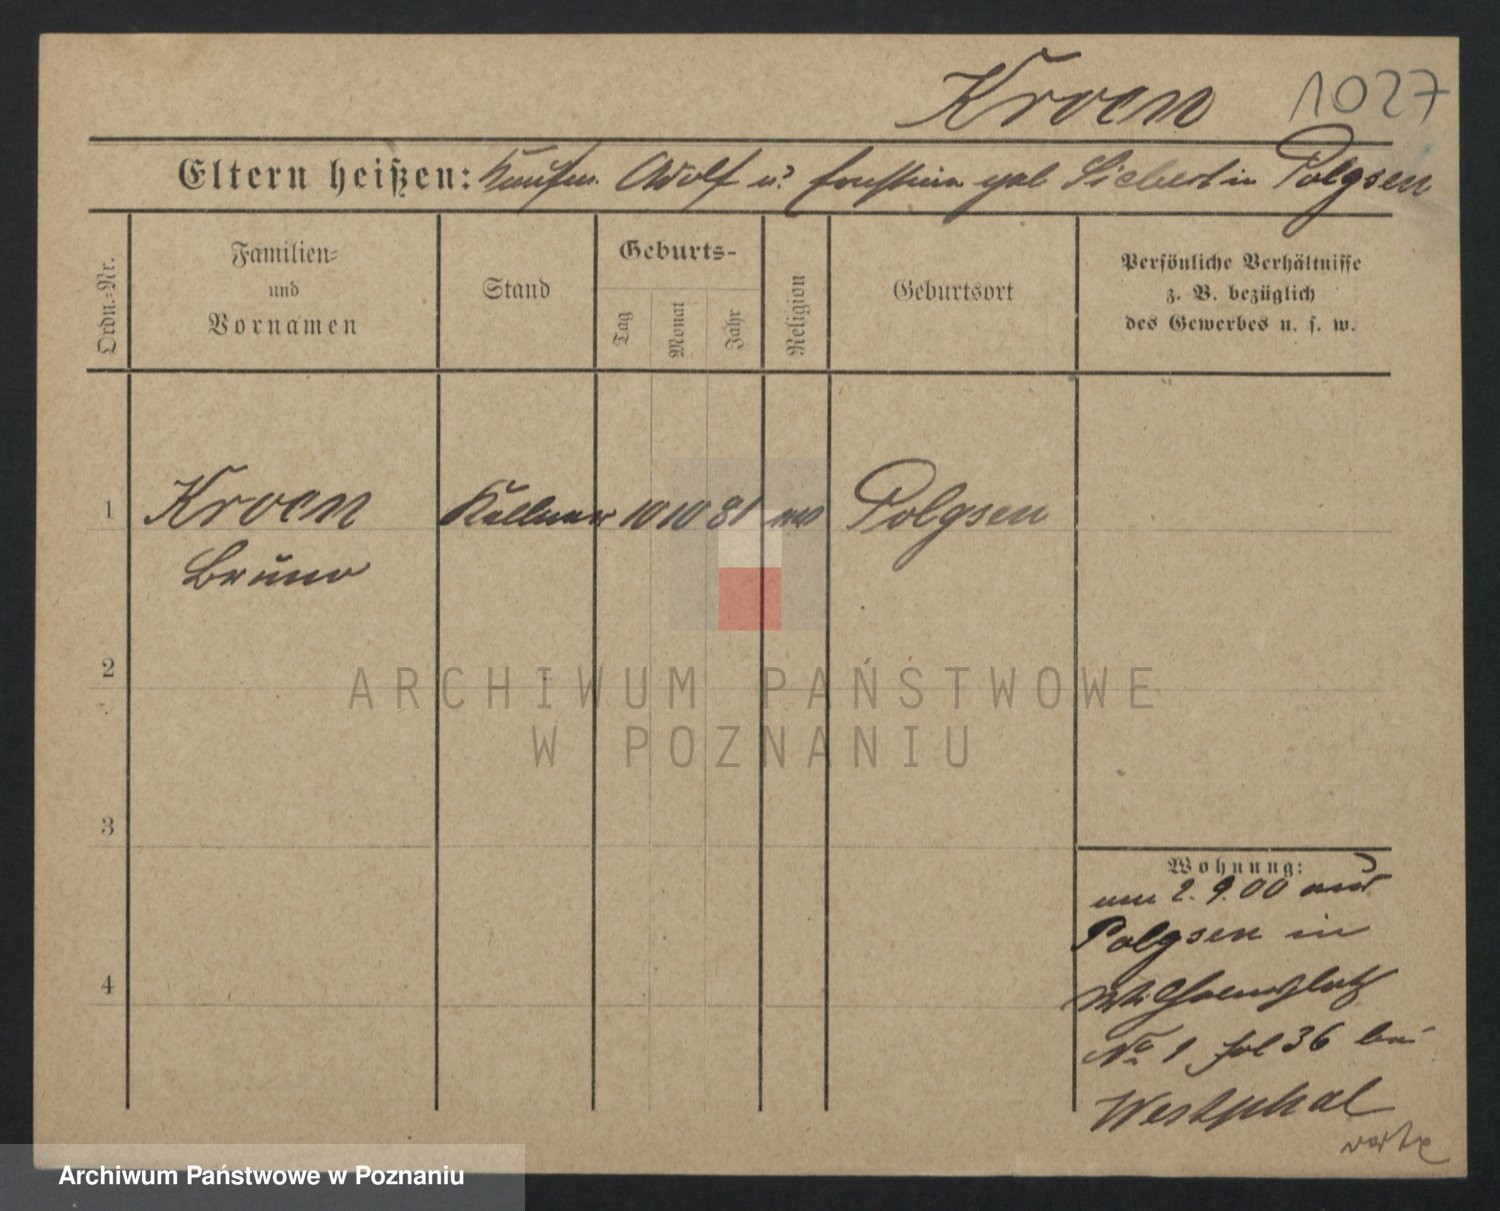 Kroen 1027
Eltern heißen: Kaufm. Adolf u. Ernestine geb. Siebert in Polgsen
Ordn.=Nr.
Familien=
und
Vornamen
Stand
Geburts-
Tag
Monat
Jahr
Religion
Geburtsort
Persönliche Verhältnisse
z. B. bezüglich
des Gewerbes u. s. w.
1 Kroen Kellner 10 10 81 Polgsen
Bruno
2
3
4
Wohnung:
am 2. 9. 00 aus
Polgsen in
Wilhelmsplatz
No 1 fol 36 bei
Westphal
ARCHIWUM PAŃSTWOWE
W POZNANIU
Archiwum Państwowe w Poznaniu